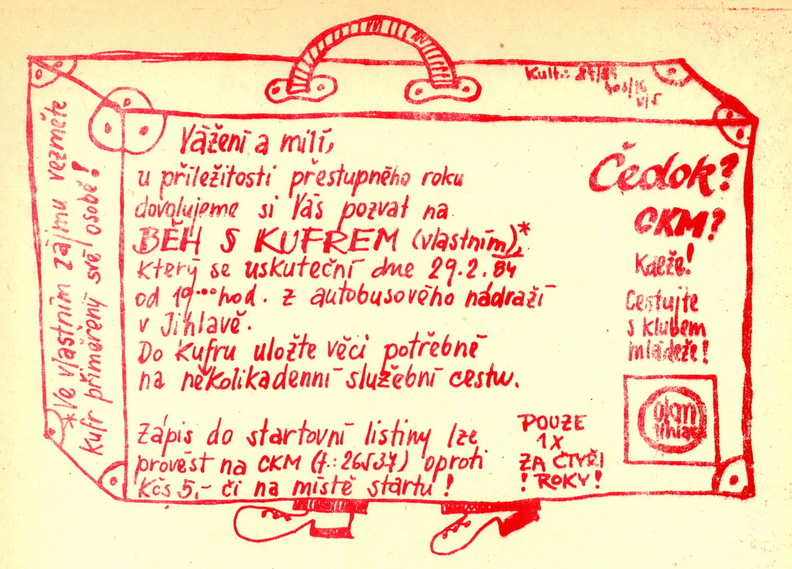 Kult.:
Vážení a milí,
u příležitosti přestupného roku
dovolujeme si Vás pozvat na
BĚH S KUFREM (vlastním)*
který se uskuteční dne 29.2.84
od 19ºº hod. z autobusového nádraží
v Jihlavě.
Do kufru uložte věci potřebné
na několikadenní služební cestu.
Zápis do startovní listiny lze
provést na CKM (t.: 26537) oproti
Kčs 5,- či na místě startu!
POUZE
1X
ZA ČTYŘI
! ROKY!
Čedok?
CKM?
Kdeže!
Cestujte
s klubem
mládeže!
Jihlava
*Ve vlastním zájmu vezměte
kufr přiměřený své osobě!